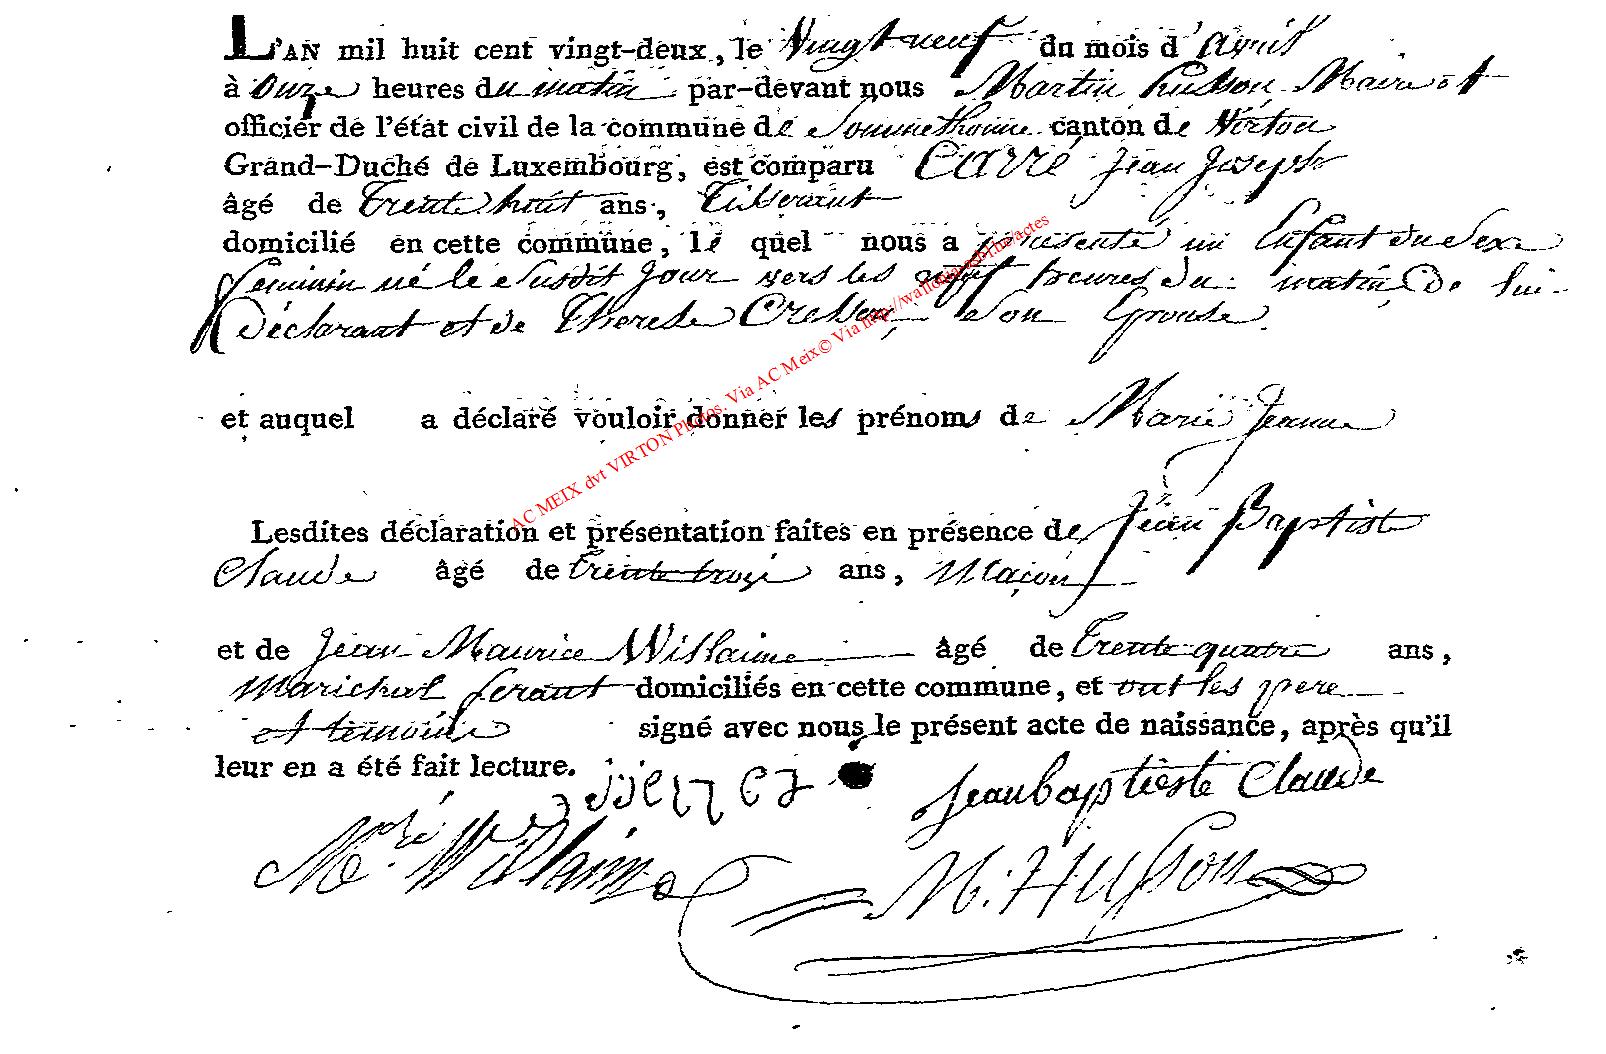 L'AN mil huit cent vingt-deux, le Vingt neuf du mois d'avril
à Onze heures du matin par-devant nous Martin husson Maire et
officier de l'état civil de la commune de Sommethonne canton de Virton
Grand-Duché de Luxembourg, est comparu CARRÉ Jean Joseph
âgé de trente huit ans, Tisserant
domicilié en cette commune, le quel nous a présenté un Enfant du Sexe
feminin né le susdit jour vers les neuf heures du matin, De lui
Déclarant et de Therese son Epouse.
et auquel a déclaré vouloir donner les prénoms de Marie Jeanne
Lesdites déclaration et présentation faites en présence de Jean Baptiste
Claude âgé de trente trois ans, Maçon
et de Jean Maurice Willaime âgé de trente quatre ans,
Marichal ferant domiciliés en cette commune, et ont les pere
et temoins signé avec nous le présent acte de naissance, après qu'il
leur en a été fait lecture.
jeanbaptieste Claude
Mce Willaime
M. Husson
AC MEIX dvt VIRTON Photos. Via AC Meix© Via